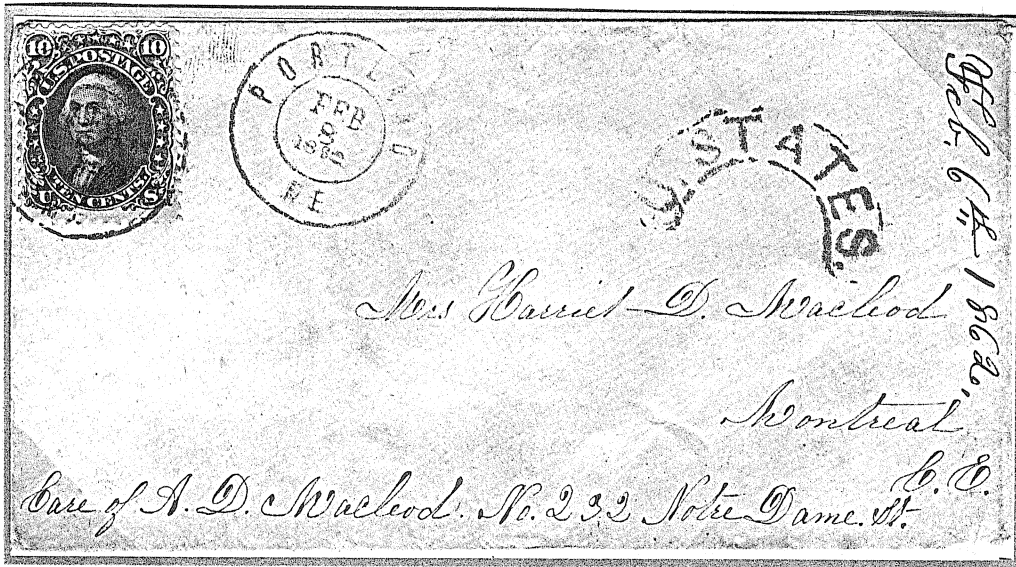 10 10
U.S. POSTAGE
TEN CENTS
U. S.
PORTLAND
FEB
ME
U. STATES.
Feb. 6th 1862,
Mrs Harriet D. Macleod
Montreal
C. E.
Care of A. D. Macleod. No. 232 Notre Dame. St.